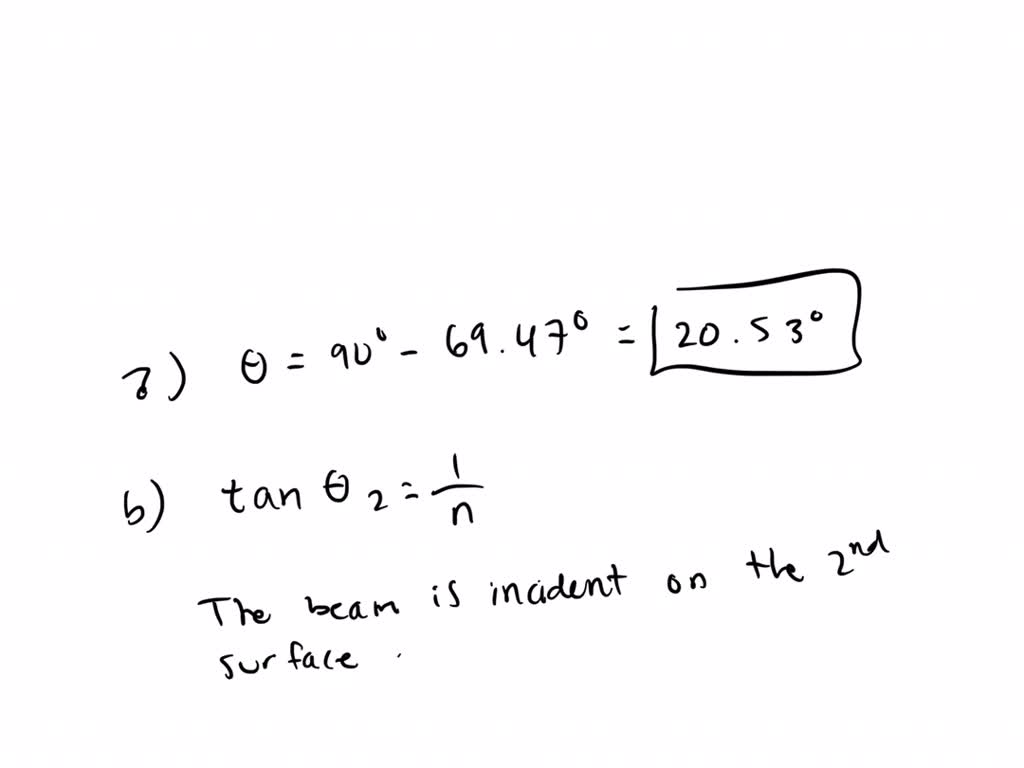 a) θ = 90° - 69.47° = 20.53°
b) tan θ₂ = 1/n
The beam is incident on the 2nd
surface.